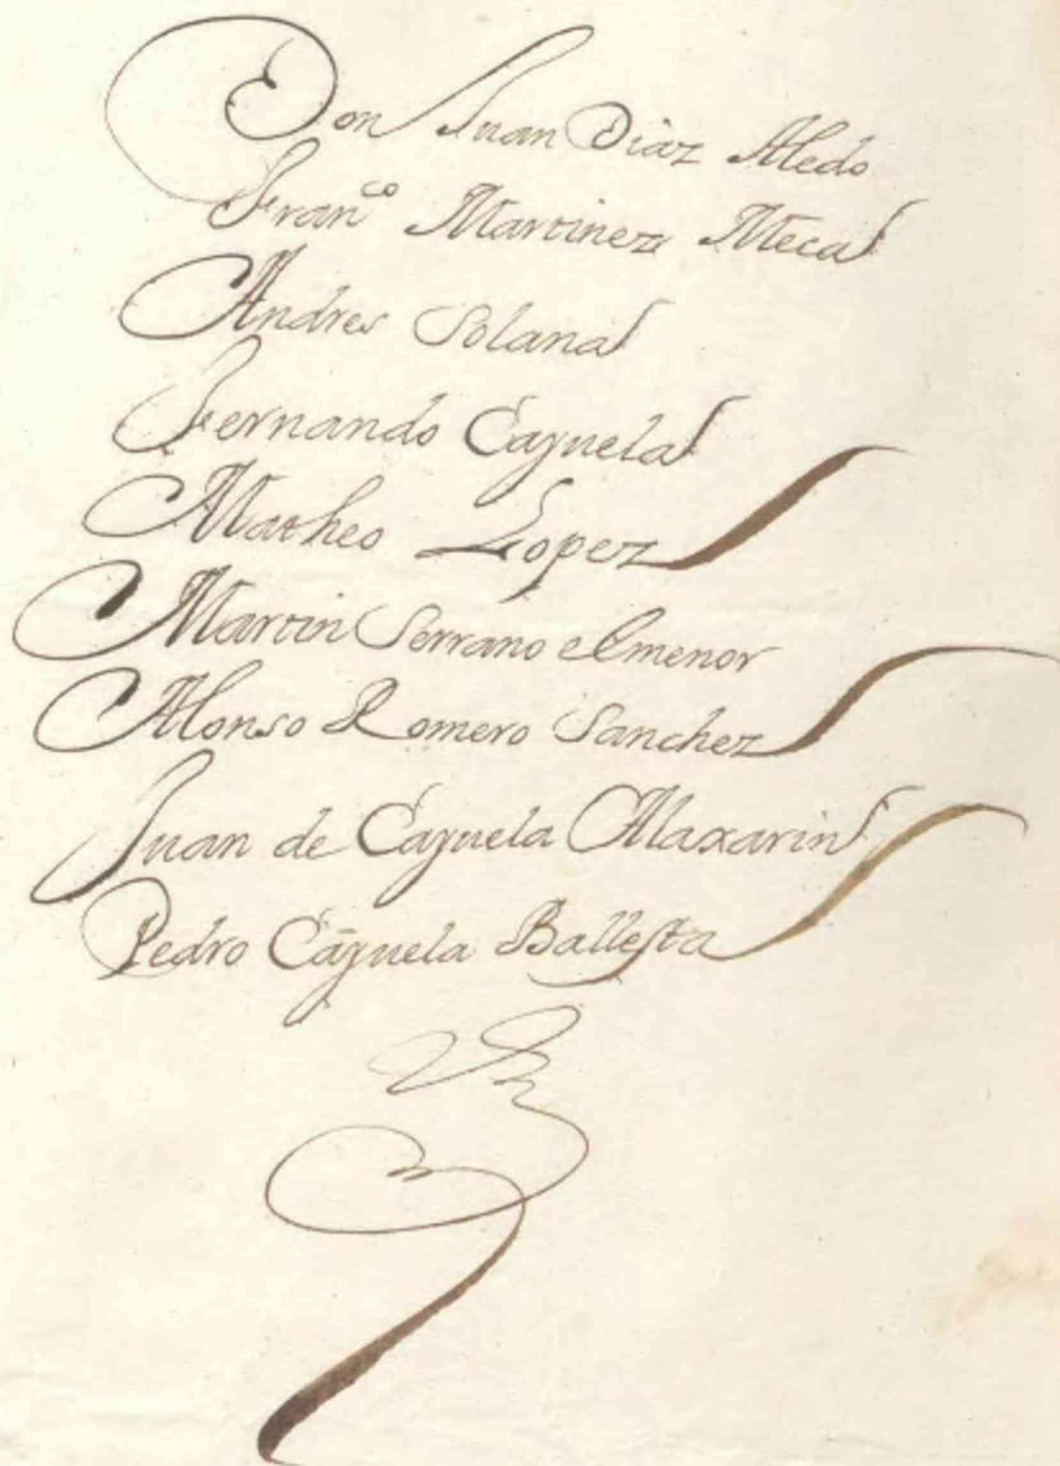 Don Juan Diaz Aledo
Fran.co Martinez Meca
Andres Solana
Fernando Cayuela
Matheo Lopez
Martin Serrano el menor
Alonso Romero Sanchez
Juan de Cayuela Maxarin
Pedro Cayuela Ballesta